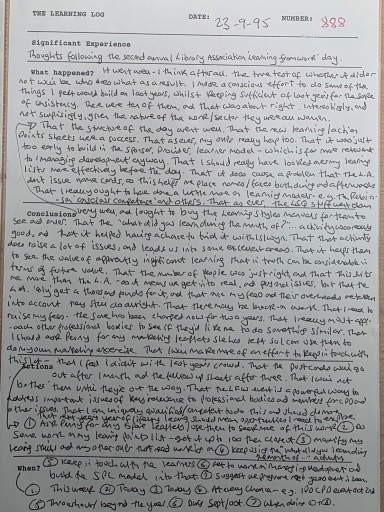 THE LEARNING LOG
DATE: 23-9-95 NUMBER: 888
Significant Experience
Thoughts following the second annual Library Association Learning framework day.
What happened? It went well - I think, after all, the true test of whether it did or
not will be who does what as a result. I made a conscious effort to do some of the
things I felt would build on last years, whilst keeping sufficient of last years for the sake
of consistency. There were ten of them, and that was about right. Interestingly, and
not surprisingly, given the nature of the work/sector they were all women.
→ That the structure of the day went well. That the new learning/action
points sheets were a success. That as ever, my only really help too. That it was just
too early to build in the Sponsor, Provider, learner model - which is far more relevant
to 'managing development' anyway. That I should really have looked at my learning
lists more effectively before the day. That it does cause a problem that the L.A.
don't issue name cards, as this helps me place names/faces both during and afterwards
That I really ought to have done a little more on learning models - e.g. the
conscious competence and others. That as ever, the LSQ stuff went down
Conclusions very well and I ought to buy the learning styles manuals for them to
see and order. That the 'what did you learn during the month of?' activity was really
good, and that it helped having a chance to trial it with others. That that activity
does raise a lot of issues, and leads us into some excellent areas. That it helps them
to see the value of apparently insignificant learning that in truth can be considerable in
terms of future value. That the number of people was just right, and that this suits
me more than the L.A. - as it means we get into real, and personal issues, but that the
L.A. only get a thousand pounds for it, and that one my fee and their overheads are taken
into account may still do alright. That there may be work in Work. That I need to
raise my fees - the same has been charged now for two years. That I really must app-
roach other professional bodies to see if they'd like me to do something similar. That
I should ask Penny for any marketing leaflets she has left so I can use them to
do my own marketing exercise. That I will make more of an effort to keep in touch with
this lot - that I feel I didn't with last years crowd. That the postcards will go
Actions out after 1 month and the follow up sheets after three. That I will not
bother them until they're out of the way. That the L.A. event is a powerful way to
address important issues of key relevance to professional bodies and
other issues. That I am uniquely qualified/
→ ① Ask Penny for any spare leaflets/use them to
some work on my learning points list - get it up to 100 then
learning skills and any other outlines I need to work on ④ Keep using the 'what did you learn during
⑤ Keep in touch with the learners ⑥ Get to work on managing development and
When? build the SPL model into that ⑦ Suggest we programme next years event soon.
① This week ② Today ③ Today ④ At every chance - e.g.
⑤ Throughout/beyond the year ⑥ During Sept/Oct ⑦